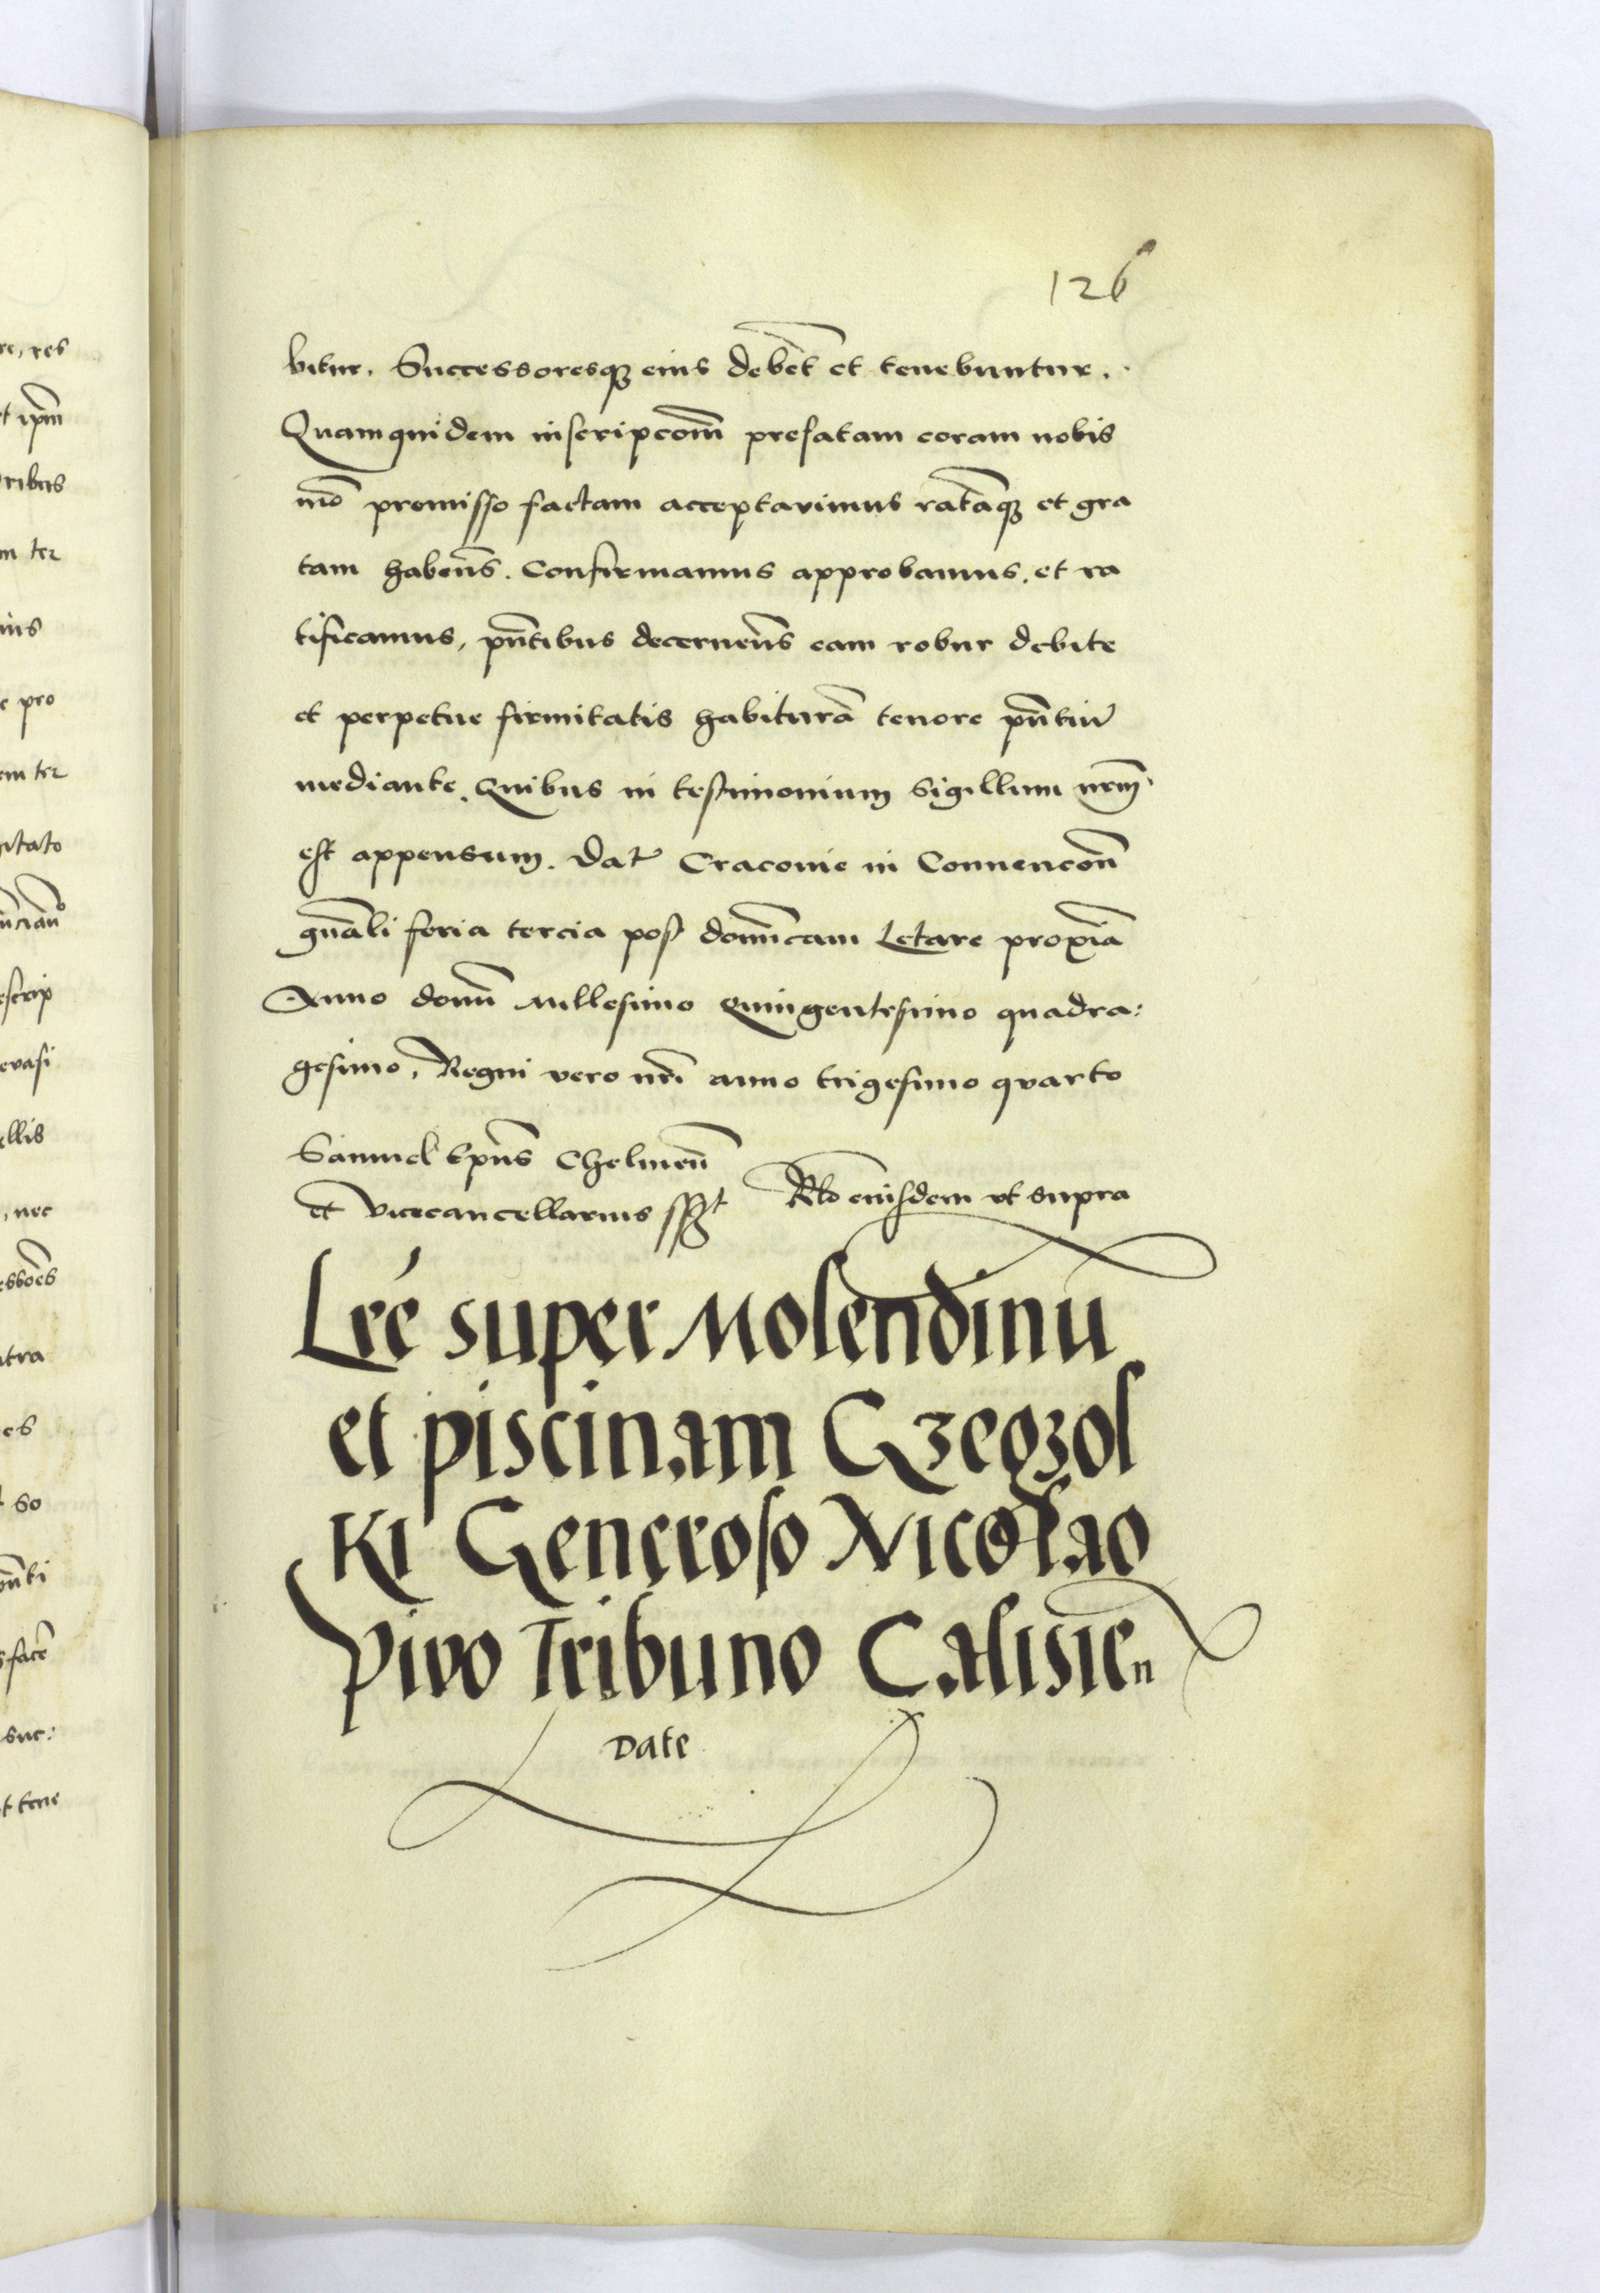 126
bitur. Successoresq3 eius debēt et tenebuntur.
Quamquidem inscripcōm prefatam coram nobis
mō premisso factam acceptavimus ratāq3 et gra
tam habeñs. Confirmamus approbamus, et ra
tificamus, pñtibus decerneñs eam robur debite
et perpetue firmitatis habiturā tenore pñtiū
mediante, Quibus in testimonium sigillum nrm̄
est appensum. Dat Cracovie in Convencōn
gñali feria tercia post domīcam Letare proxīa
Anno domī Millesimo Quingentesimo quadra:
gesimo, Regni vero nrī anno trigesimo quarto
Samuel Epūs Chelmeñ
et Vicecancellarius sst Rlo eiusdem ut supra
Lrē super Molendinū
et piscinam Czegzol
ki Generoso Nicolao
Pivo Tribuno Calisien
Date
re, res
t ipm̄
ribus
m ter
ius
e pro
em ter
itato
escrip
evasi
ellis
, nec
essoēs
tra
es
so
sfacē
suc:
t tene